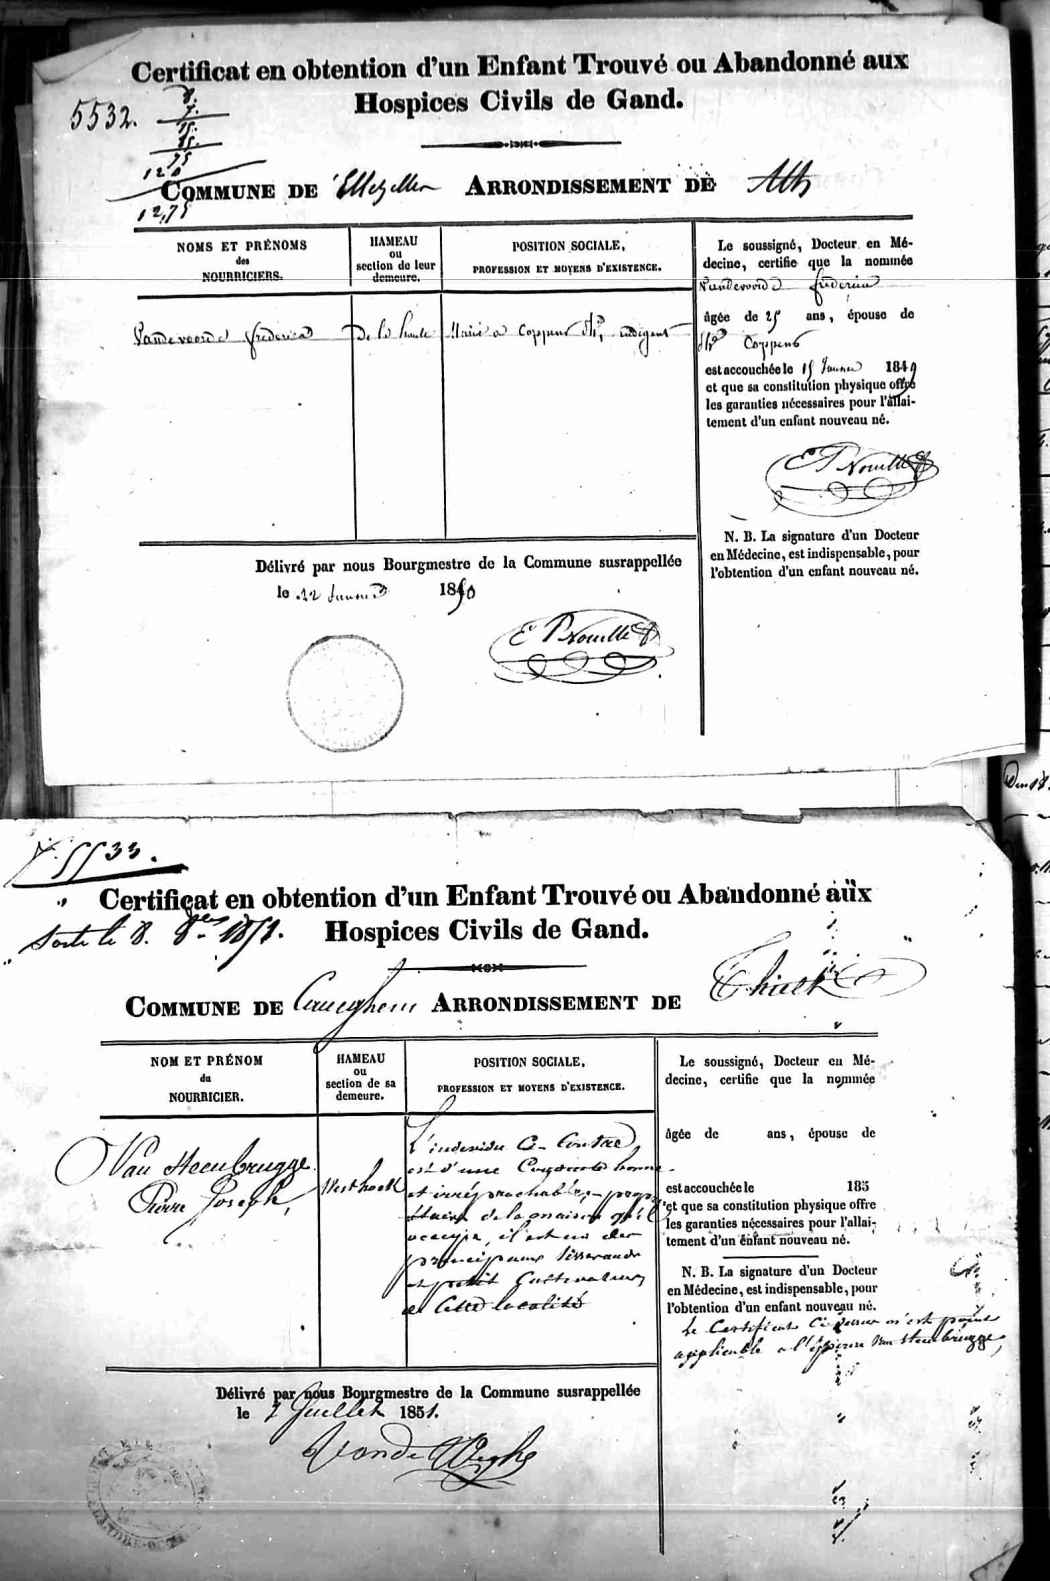 Certificat en obtention d'un Enfant Trouvé ou Abandonné aux
Hospices Civils de Gand.
5532.
8.
7.
15.
75
120
12,75
COMMUNE DE Ellezelles ARRONDISSEMENT DE Ath
NOMS ET PRÉNOMS
des
NOURRICIERS.
HAMEAU
ou
section de leur
demeure.
POSITION SOCIALE,
PROFESSION ET MOYENS D'EXISTENCE.
Vandevoorde frederica
De la haute
Marié a Coppens indigent
Le soussigné, Docteur en Mé-
decine, certifie que la nommée
Vandevoorde
âgée de 25 ans, épouse de
Coppens
est accouchée le 15 Janvier 1849
et que sa constitution physique offre
les garanties nécessaires pour l'allai-
tement d'un enfant nouveau né.
N. B. La signature d'un Docteur
en Médecine, est indispensable, pour
l'obtention d'un enfant nouveau né.
Délivré par nous Bourgmestre de la Commune susrappellée
le 22 Janvier 1850
5533.
Certificat en obtention d'un Enfant Trouvé ou Abandonné aux
Hospices Civils de Gand.
Sorti le 8. 8bre 1851.
COMMUNE DE Caneghem ARRONDISSEMENT DE Thielt
NOM ET PRÉNOM
du
NOURRICIER.
HAMEAU
ou
section de sa
demeure.
POSITION SOCIALE,
PROFESSION ET MOYENS D'EXISTENCE.
Van Steenbrugge
Pierre Joseph,
Westhoek
L'individu Ci-Contre
est d'une Conduite bonne
et irréprochable, propri
étaire de la maison qu'il
occupe, il est un des
principaux tisserands
et petit Cultivateur
de Cette localité
Le soussigné, Docteur en Mé-
decine, certifie que la nommée
âgée de ans, épouse de
est accouchée le 185
et que sa constitution physique offre
les garanties nécessaires pour l'allai-
tement d'un enfant nouveau né.
N. B. La signature d'un Docteur
en Médecine, est indispensable, pour
l'obtention d'un enfant nouveau né.
Le Certificat Ci dessus n'est point
applicable a l'épouse Van Steenbrugge,
Délivré par nous Bourgmestre de la Commune susrappellée
le 2 Juillet 1851.